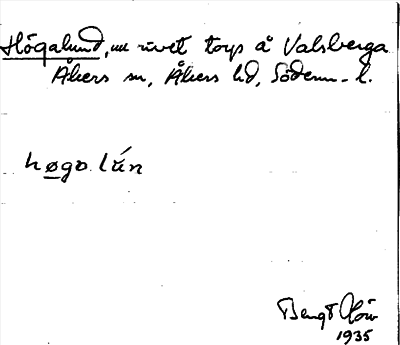 Högalund, nu rivet torp å Valsberga
Åkers sn, Åkers hd, Söderm. l.
høgo lún
Bengt
1935